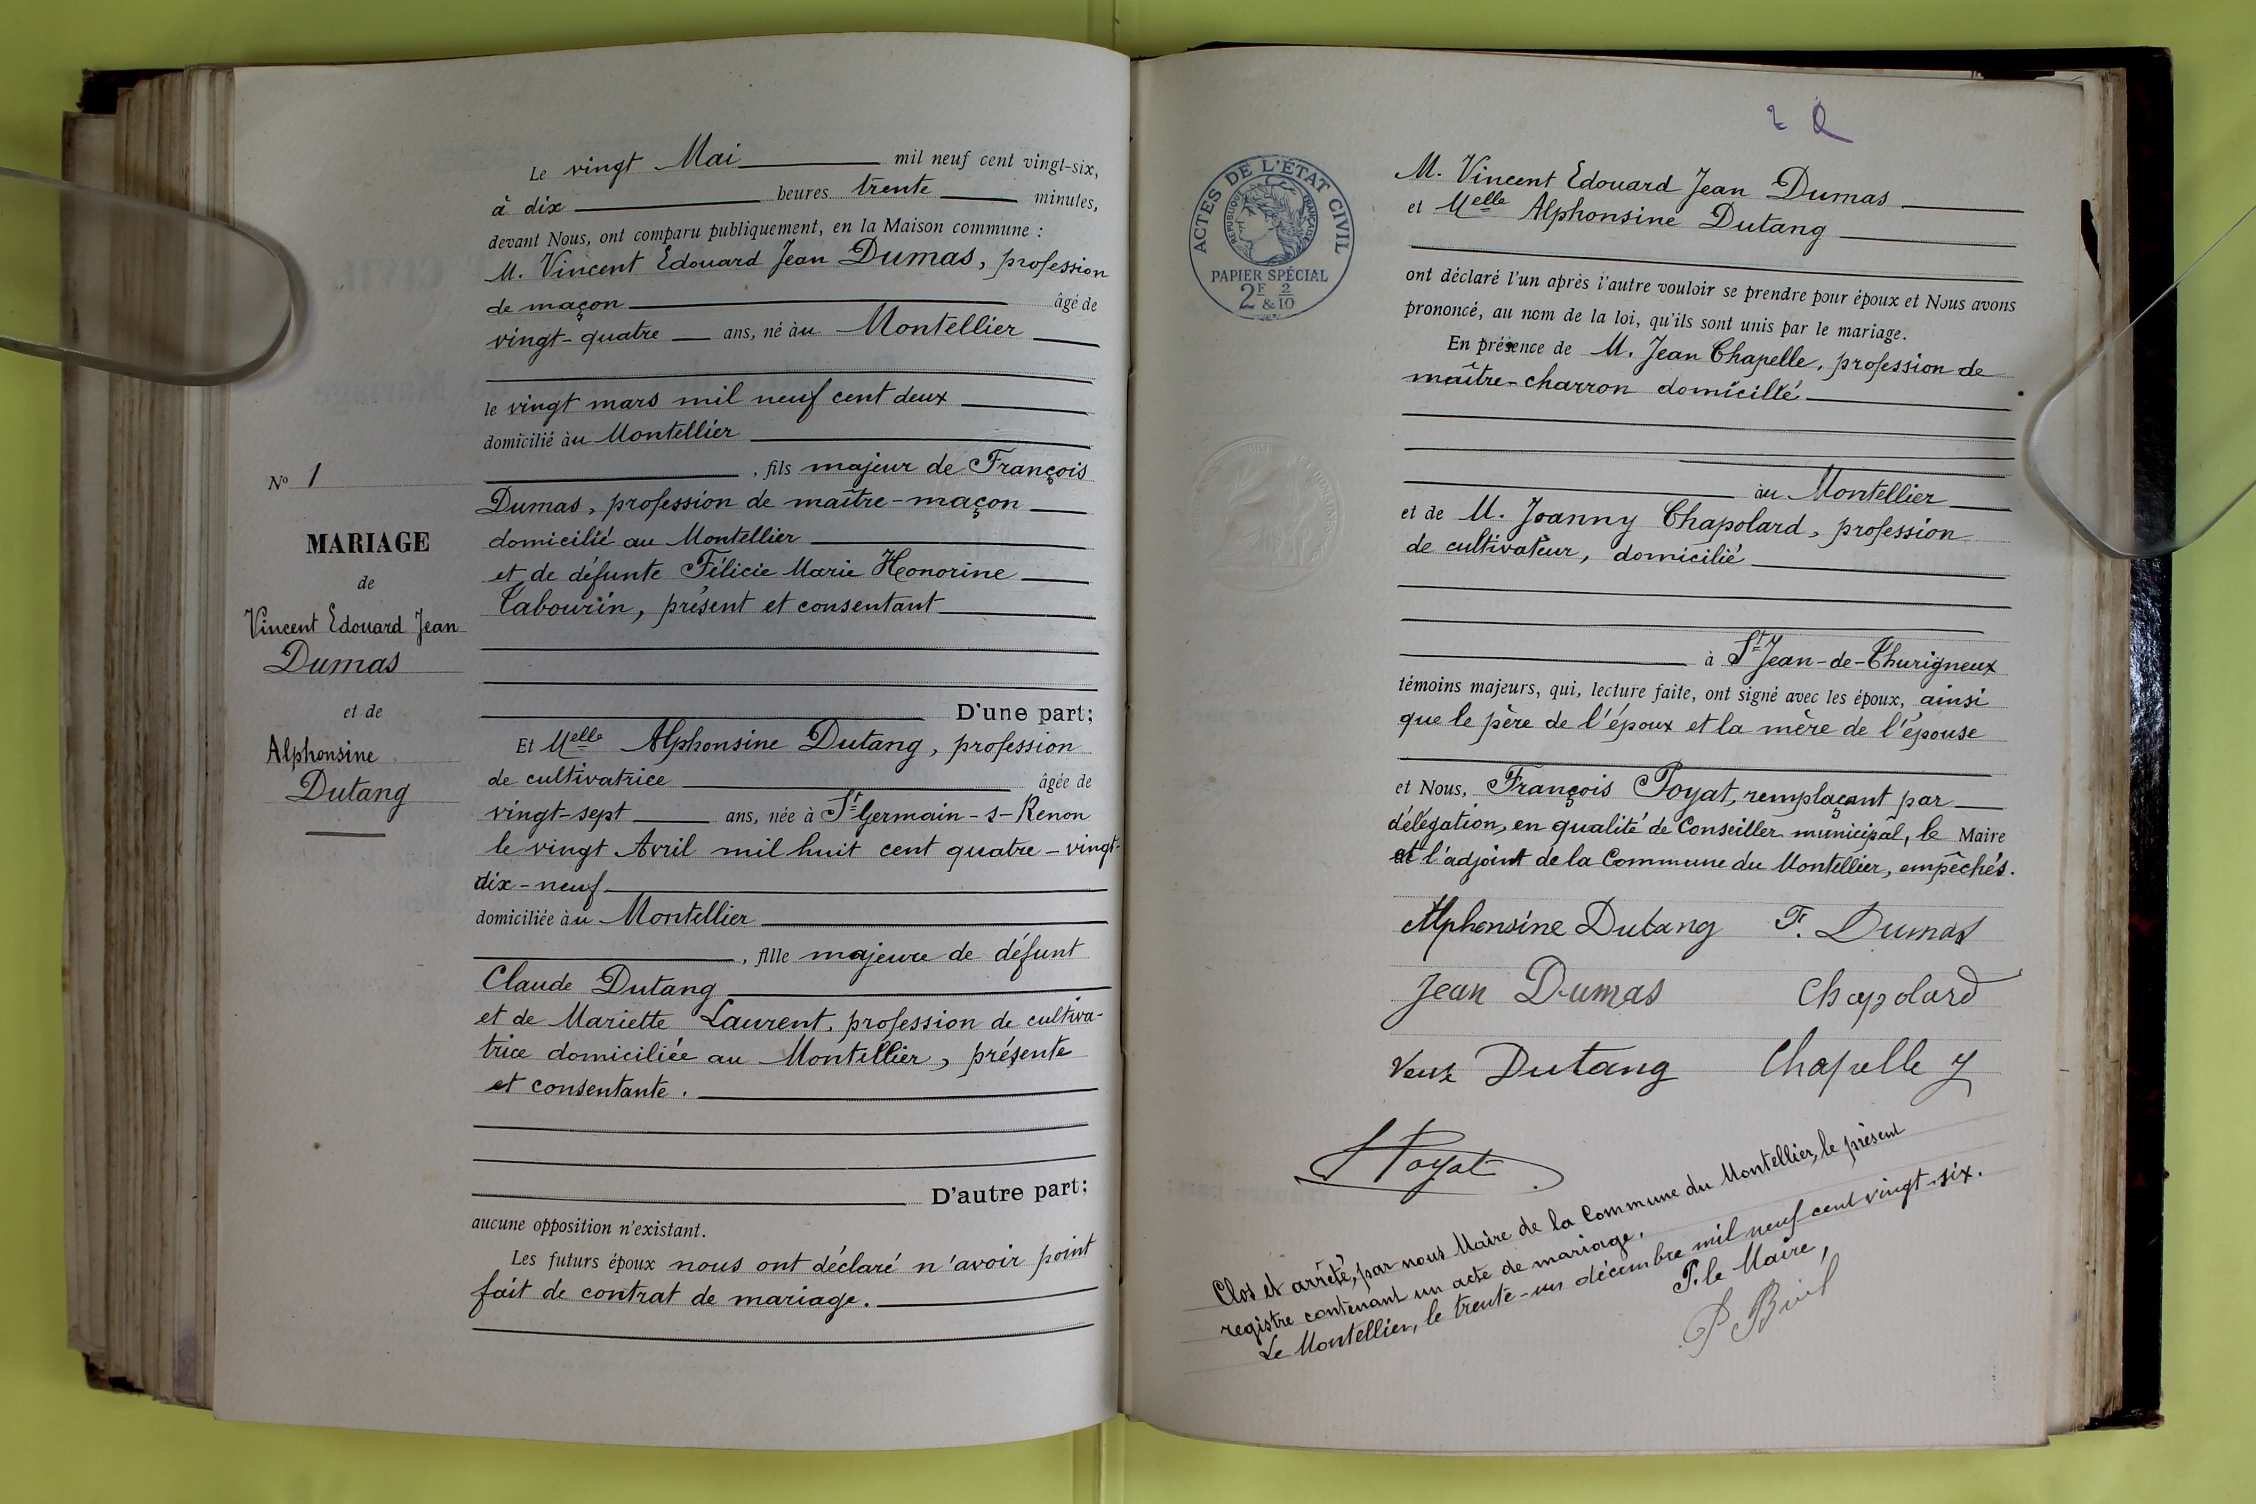 Le vingt Mai mil neuf cent vingt-six,
à dix heures trente minutes,
devant Nous, ont comparu publiquement, en la Maison commune :
M. Vincent Edouard Jean Dumas, profession
de maçon âgé de
vingt-quatre ans, né àu Montellier
le vingt mars mil neuf cent deux
domicilié àu Montellier
, fils majeur de François
Dumas, profession de maître-maçon
domicilié au Montellier
et de défunte Félicie Marie Honorine
Tabourin, présent et consentant
D'une part;
Et Melle Alphonsine Dutang, profession
de cultivatrice âgée de
vingt-sept ans, née à St Germain-s-Renon
le vingt Avril mil huit cent quatre-vingt-
dix-neuf
domiciliée àu Montellier
, fille majeure de défunt
Claude Dutang
et de Mariette Laurent, profession de cultiva-
trice domiciliée au Montellier, présente
et consentante.
D'autre part;
aucune opposition n'existant.
Les futurs époux nous ont déclaré n'avoir point
fait de contrat de mariage.
No 1
MARIAGE
de
Vincent Edouard Jean
Dumas
et de
Alphonsine
Dutang
ACTES DE L'ÉTAT CIVIL
RÉPUBLIQUE FRANÇAISE
PAPIER SPÉCIAL
2F & 2/10
M. Vincent Edouard Jean Dumas
et Melle Alphonsine Dutang
ont déclaré l'un après l'autre vouloir se prendre pour époux et Nous avons
prononcé, au nom de la loi, qu'ils sont unis par le mariage.
En présence de M. Jean Chapelle, profession de
maître-charron domicilié
àu Montellier
et de M. Joanny Chapolard, profession
de cultivateur, domicilié
à St Jean-de-Thurigneux
témoins majeurs, qui, lecture faite, ont signé avec les époux, ainsi
que le père de l'époux et la mère de l'épouse
et Nous, François Poyat, remplaçant par
délégation, en qualité de Conseiller municipal, le Maire
et l'adjoint de la Commune du Montellier, empêchés.
Alphonsine Dutang F. Dumas
Jean Dumas Chapolard
Dutang Chapelle J
Poyat
Clos et arrêté, par nous Maire de la Commune du Montellier, le présent
registre contenant un acte de mariage.
Le Montellier, le trente-un décembre mil neuf cent vingt-six.
P. le Maire,